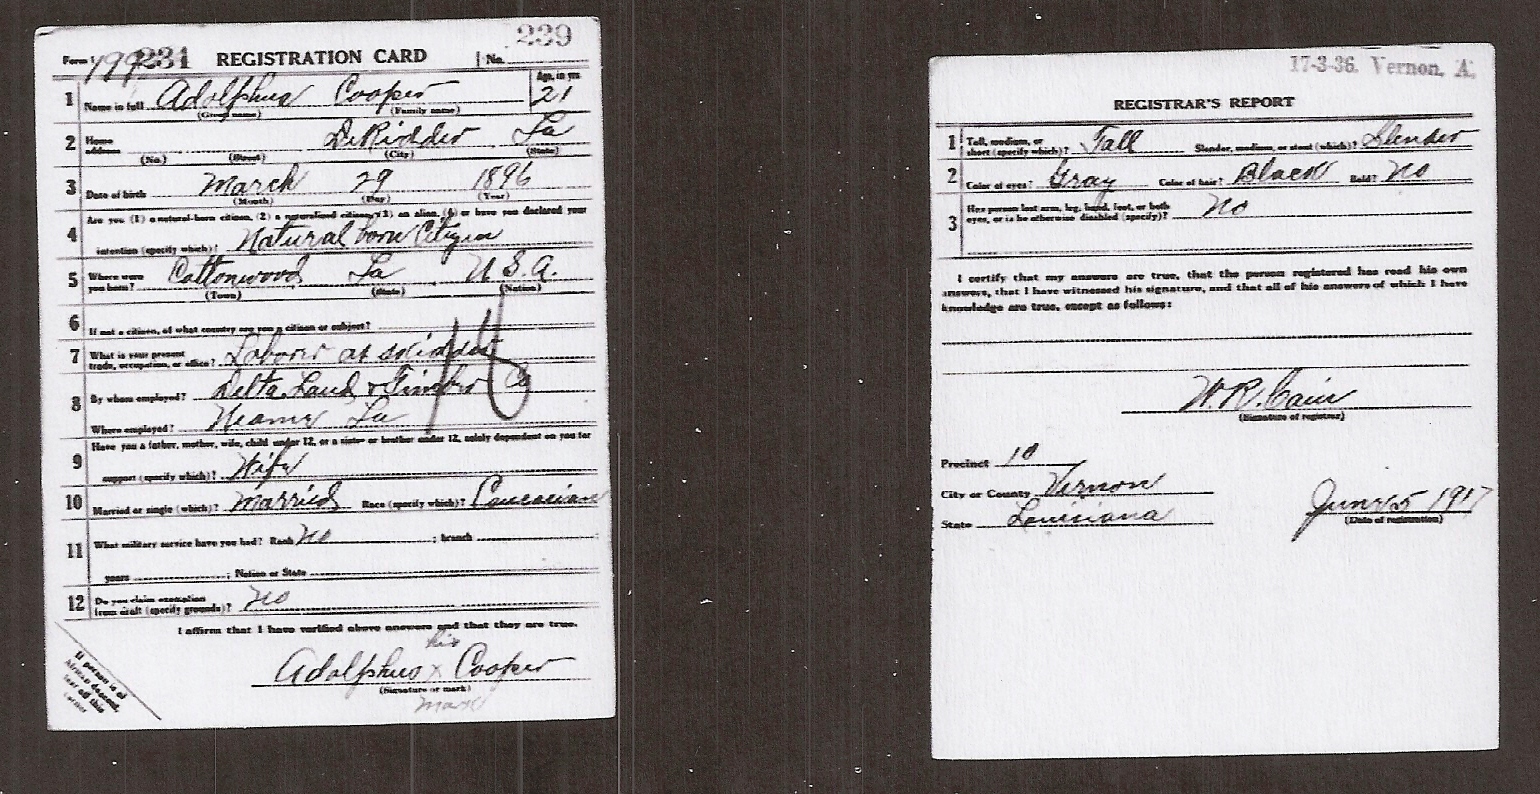 239
Form 1 199 231 REGISTRATION CARD No.
Age, in yrs
1 Name in full Adolphus Cooper 21
(Given name) (Family name)
2 Home address DeRidder La
(No.) (Street) (City) (State)
3 Date of birth March 29 1896
(Month) (Day) (Year)
Are you (1) a natural-born citizen, (2) a naturalized citizen, (3) an alien, (4) or have you declared your
4 intention (specify which)? Natural born Citizen
5 Where were you born? Cottonwood La U.S.A.
(Town) (State) (Nation)
6 If not a citizen, of what country are you a citizen or subject?
7 What is your present trade, occupation, or office? Laborer at skidder
8 By whom employed? Delta Land & Timber Co
Where employed? Neame La
Have you a father, mother, wife, child under 12, or a sister or brother under 12, solely dependent on you for
9 support (specify which)? Wife
10 Married or single (which)? Married Race (specify which)? Caucasian
11 What military service have you had? Rank No ; branch ;
years ; Nation or State
12 Do you claim exemption from draft (specify grounds)? No
I affirm that I have verified above answers and that they are true.
his
Adolphus x Cooper
(Signature or mark)
mark
If person is of
African descent,
tear off this
corner
17-3-36. Vernon, A.
REGISTRAR'S REPORT
1 Tall, medium, or short (specify which)? Tall Slender, medium, or stout (which)? Slender
2 Color of eyes? Gray Color of hair? Black Bald? No
3 Has person lost arm, leg, hand, foot, or both eyes, or is he otherwise disabled (specify)? No
I certify that my answers are true, that the person registered has read his own
answers, that I have witnessed his signature, and that all of his answers of which I have
knowledge are true, except as follows:
W. R. Cain
(Signature of registrar)
Precinct 10
City or County Vernon
State Louisiana June 5 1917
(Date of registration)